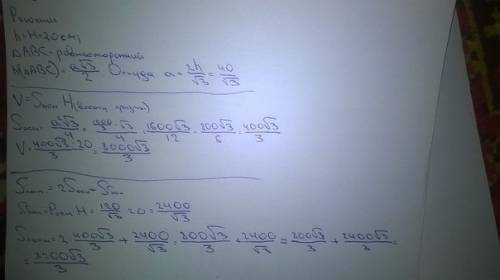 Решение
h=H=20см,
△ABC - равносторонний
H(△ABC)= a√3/2 Откуда a= 2h/√3 = 40/√3
V=Sосн H(высота призмы)
Sосн= a²√3/4 = √3/4 = 1600√3/12 = 200√3/6 = 400√3/3
V= 400√3·20/3 = 8000√3/3
Sполн = 2Sосн+Sбок
Sбок=Pосн H= 120/√3 20 = 2400/√3
Sполн=2 400√3/3 + 2400/√3 = 800√3/3 + 2400/√3 = 800√3/3 + 2400√3/3 =
= 3200√3/3